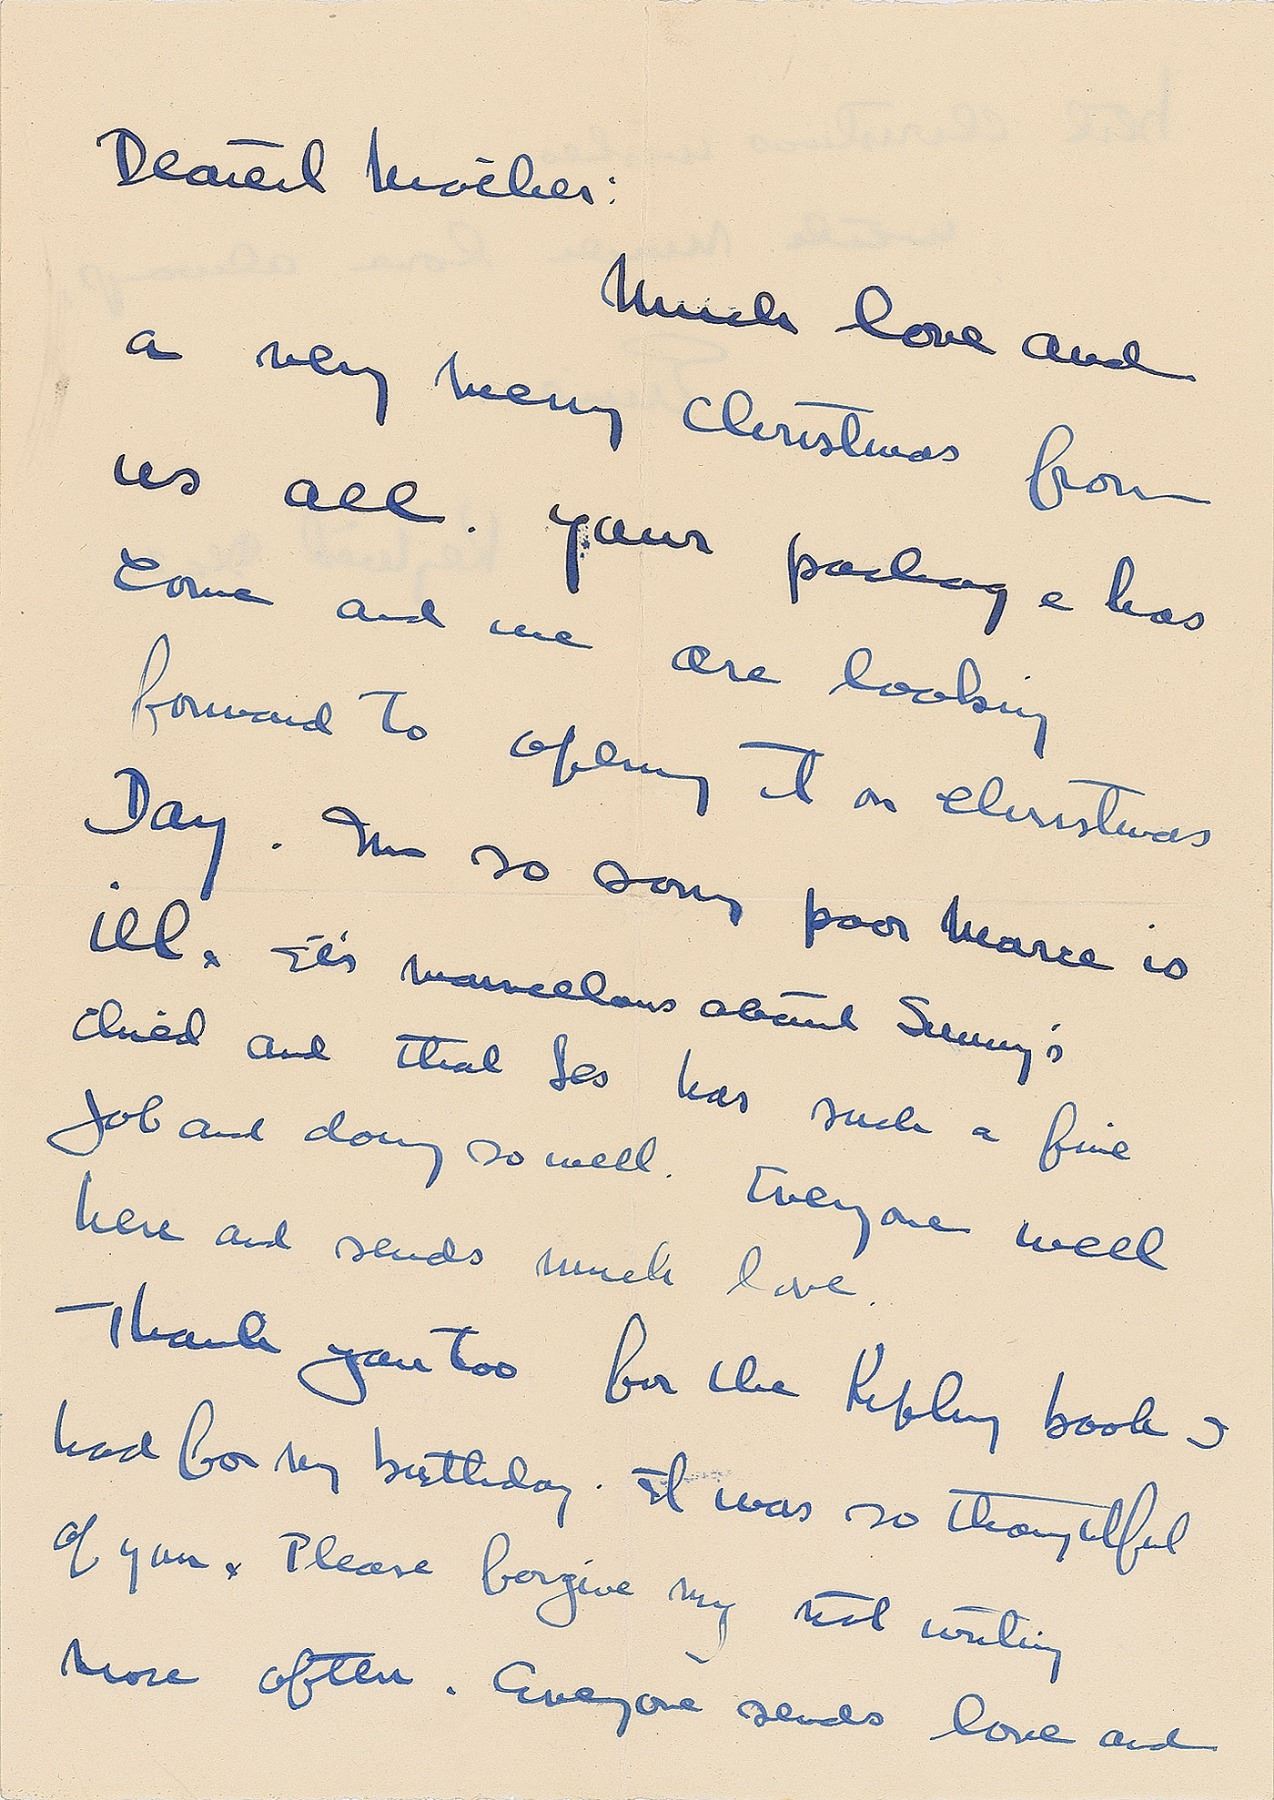 Dearest Mother:
Much love and
a very merry Christmas from
us all. Your package has
come and we are looking
forward to opening it on Christmas
Day. I'm so sorry poor Marce is
ill. It's marvellous about Sunny's
child and that Les has such a fine
job and doing so well. Everyone well
here and sends much love.
Thank you too for the Kipling book I
had for my birthday. It was so thoughtful
of you. Please forgive my not writing
more often. Everyone sends love and